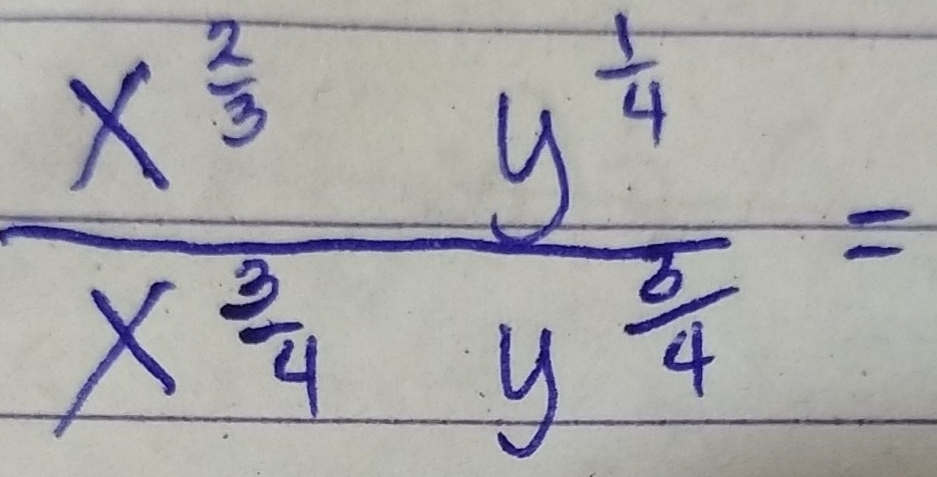 x^{2/3} y^{1/4}
―――――――― =
x^{3/4} y^{5/4}